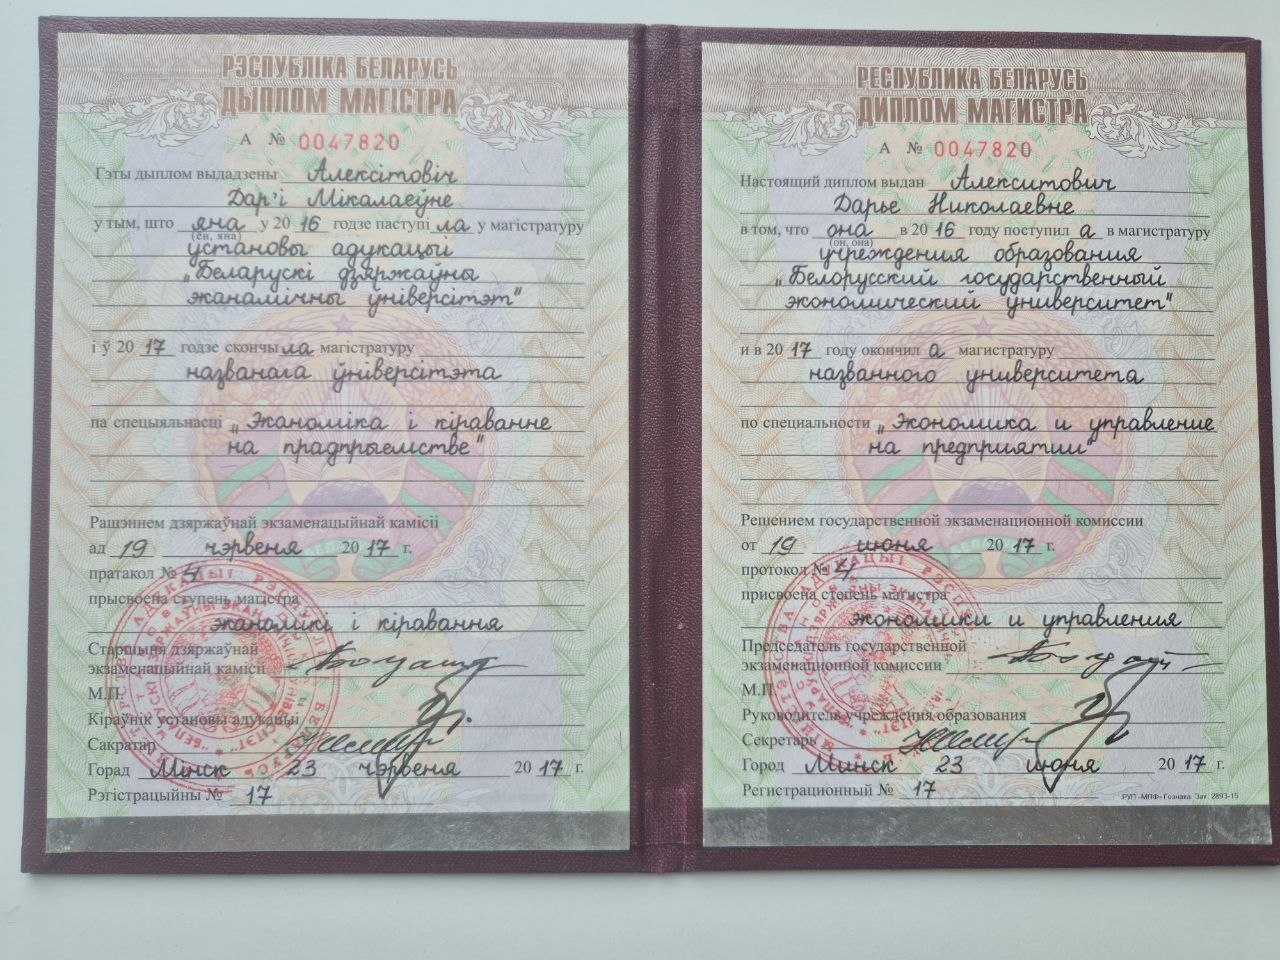 РЭСПУБЛІКА БЕЛАРУСЬ
ДЫПЛОМ МАГІСТРА
А № 0047820
Гэты дыплом выдадзены Алексітовіч
Дар'і Мікалаеўне
у тым, што яна у 20 16 годзе паступі ла у магістратуру
(ён, яна)
установы адукацыі
„Беларускі дзяржаўны
эканамічны ўніверсітэт"
і ў 20 17 годзе скончы ла магістратуру
названага ўніверсітэта
па спецыяльнасці „Эканоміка і кіраванне
на прадпрыемстве"
Рашэннем дзяржаўнай экзаменацыйнай камісіі
ад 19 чэрвеня 20 17 г.
пратакол № 4
прысвоена ступень магістра
эканомікі і кіравання
Старшыня дзяржаўнай
экзаменацыйнай камісіі
М.П.
Кіраўнік установы адукацыі
Сакратар
Горад Мінск 23 чэрвеня 20 17 г.
Рэгістрацыйны № 17
РЕСПУБЛИКА БЕЛАРУСЬ
ДИПЛОМ МАГИСТРА
А № 0047820
Настоящий диплом выдан Алекситович
Дарье Николаевне
в том, что она в 20 16 году поступил а в магистратуру
(он, она)
учреждения образования
„Белорусский государственный
экономический университет"
и в 20 17 году окончил а магистратуру
названного университета
по специальности „Экономика и управление
на предприятии"
Решением государственной экзаменационной комиссии
от 19 июня 20 17 г.
протокол № 4
присвоена степень магистра
экономики и управления
Председатель государственной
экзаменационной комиссии
М.П.
Руководитель учреждения образования
Секретарь
Город Минск 23 июня 20 17 г.
Регистрационный № 17
РУП «МПФ» Гознака. Зак. 2893-15